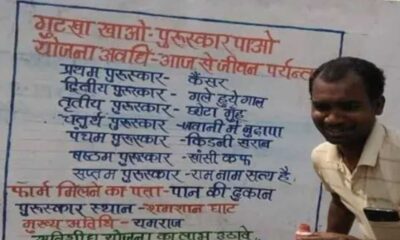 गुटखा खाओ-पुरूस्कार पाओ
योजना अवधि-आज से जीवन पर्यन्त
प्रथम पुरूस्कार - कैंसर
द्वितीय पुरूस्कार - गले हुये गाल
तृतीय पुरूस्कार - छोटा मुँह
चतुर्थ पुरूस्कार - जवानी में बुढापा
पंचम पुरूस्कार - किडनी खराब
षष्ठम पुरूस्कार - खांसी कफ
सप्तम पुरूस्कार - राम नाम सत्य है
फार्म मिलने का पता - पान की दुकान
पुरूस्कार स्थान - शमसान घाट
मुख्य अतिथि - यमराज
अतिशीघ्र योजना का लाभ उठावे